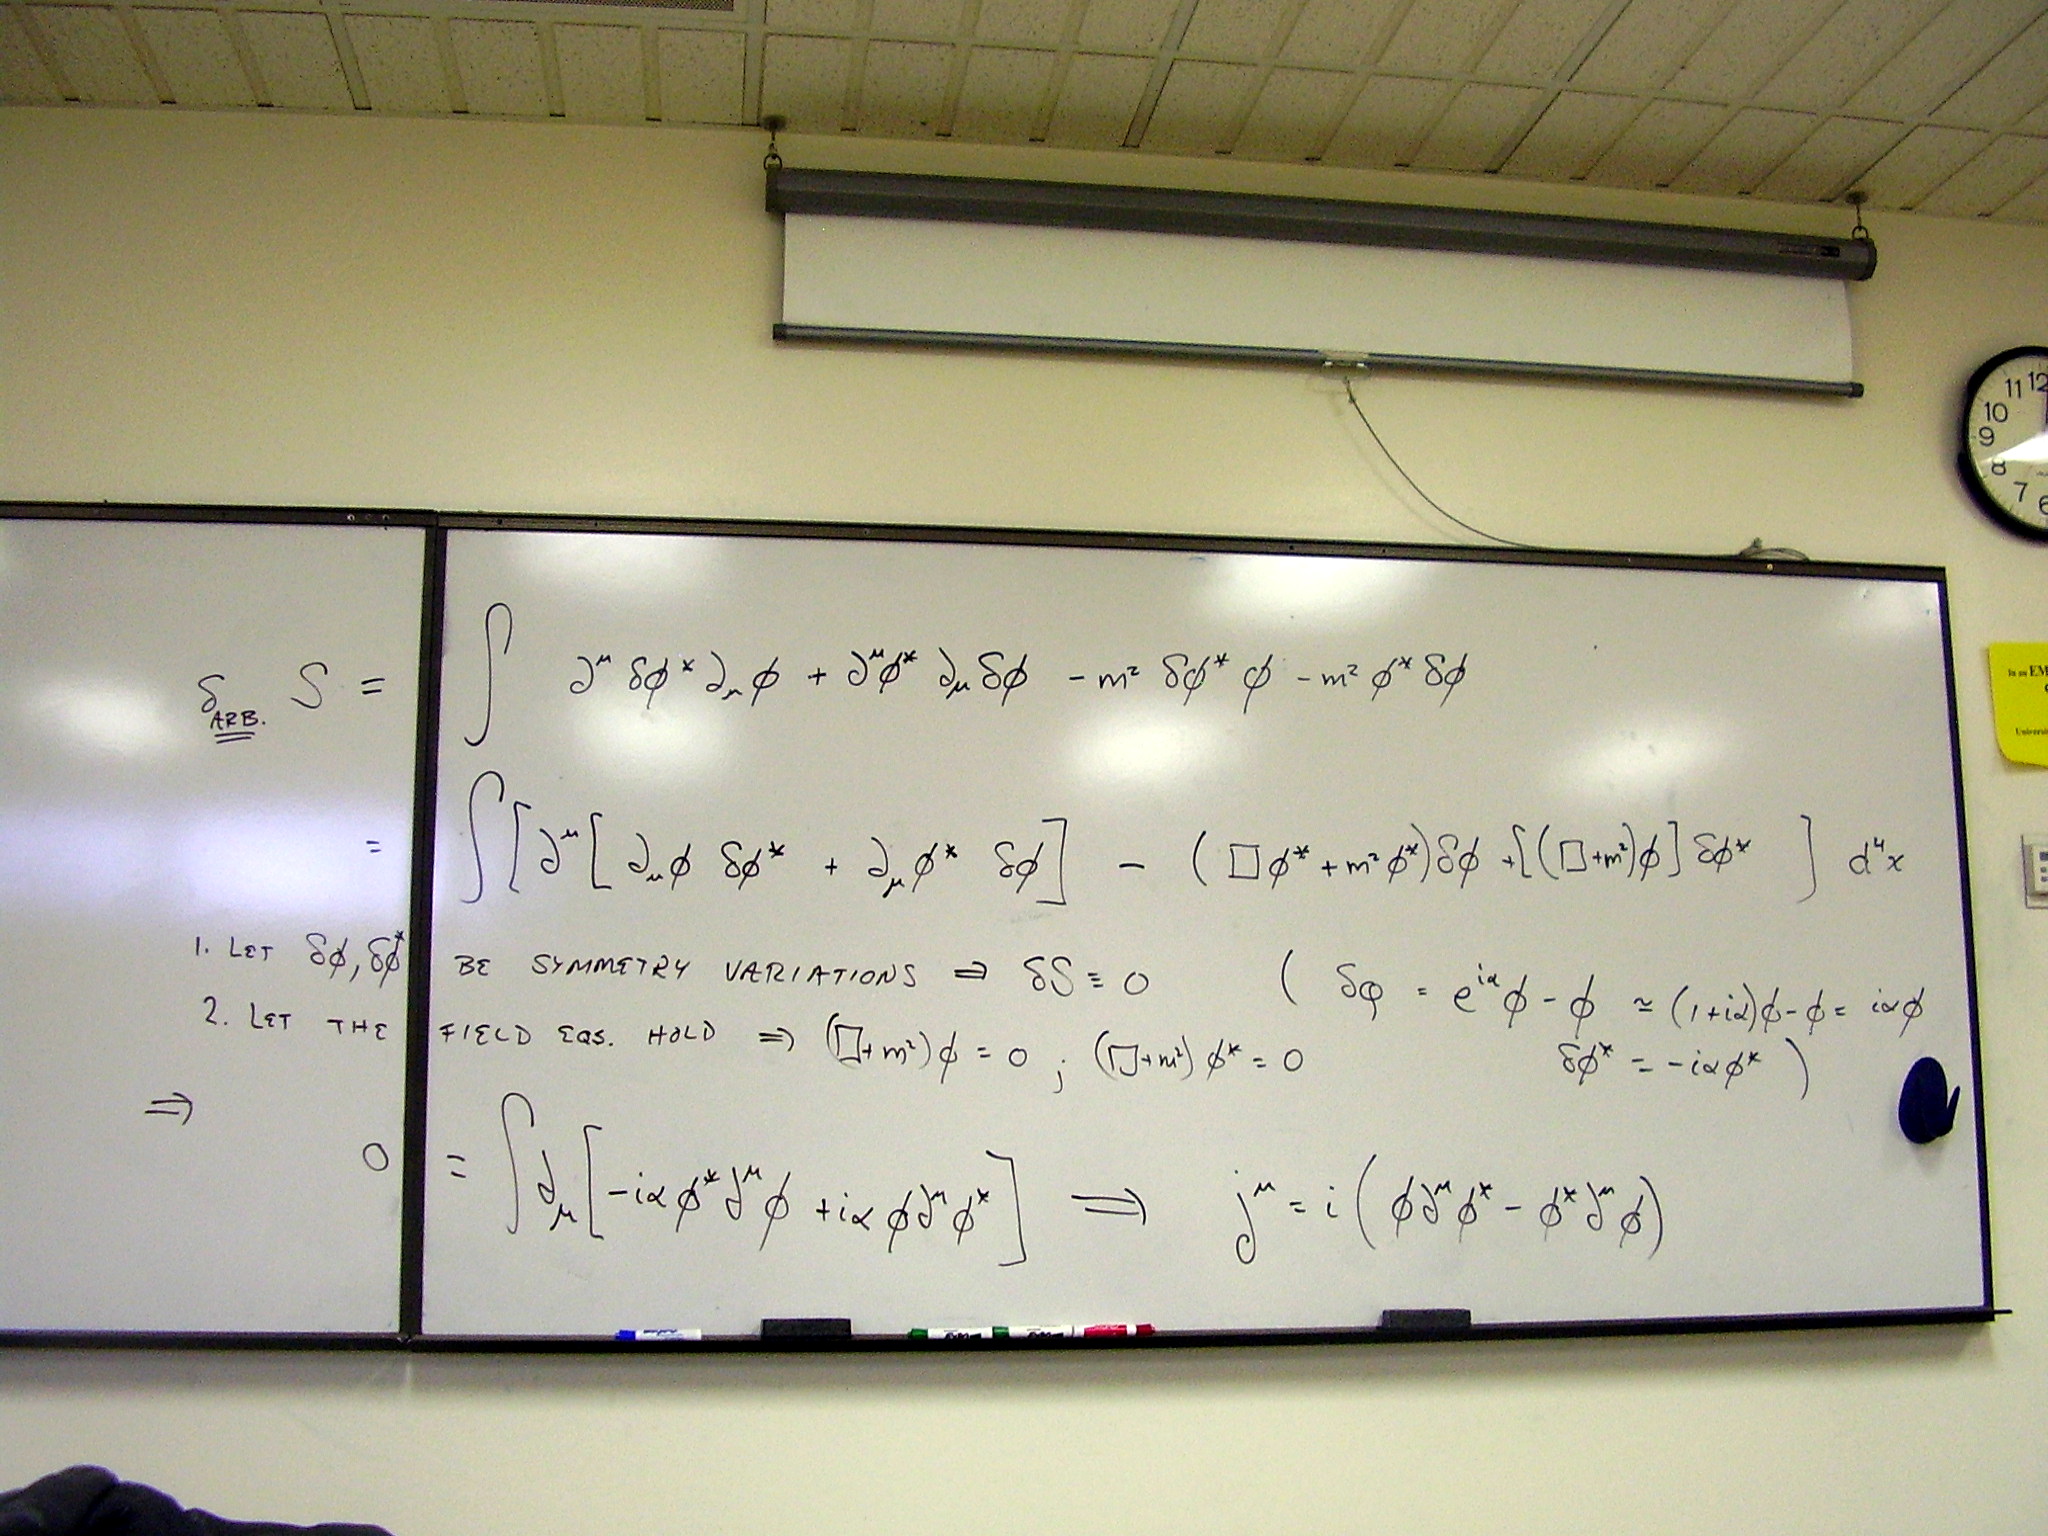 11 12
10
9
8
7 6
δ_ARB. S = ∫ ∂^μ δφ* ∂_μ φ + ∂^μ φ* ∂_μ δφ - m² δφ* φ - m² φ* δφ
In an EM
Universi
= ∫ [ ∂^μ [ ∂_μ φ δφ* + ∂_μ φ* δφ ] - ( □ φ* + m² φ* ) δφ + [ (□ + m²) φ ] δφ* ] d⁴x
1. LET δφ, δφ* BE SYMMETRY VARIATIONS ⇒ δS ≡ 0 ( δφ = e^{iα} φ - φ ≃ (1+iα)φ - φ = iαφ
2. LET THE FIELD EQS. HOLD ⇒ (□+m²) φ = 0 ; (□+m²) φ* = 0 δφ* = -iαφ* )
⇒
0 = ∫ ∂_μ [ -iα φ* ∂^μ φ + iα φ ∂^μ φ* ] ⇒ j^μ = i ( φ ∂^μ φ* - φ* ∂^μ φ )